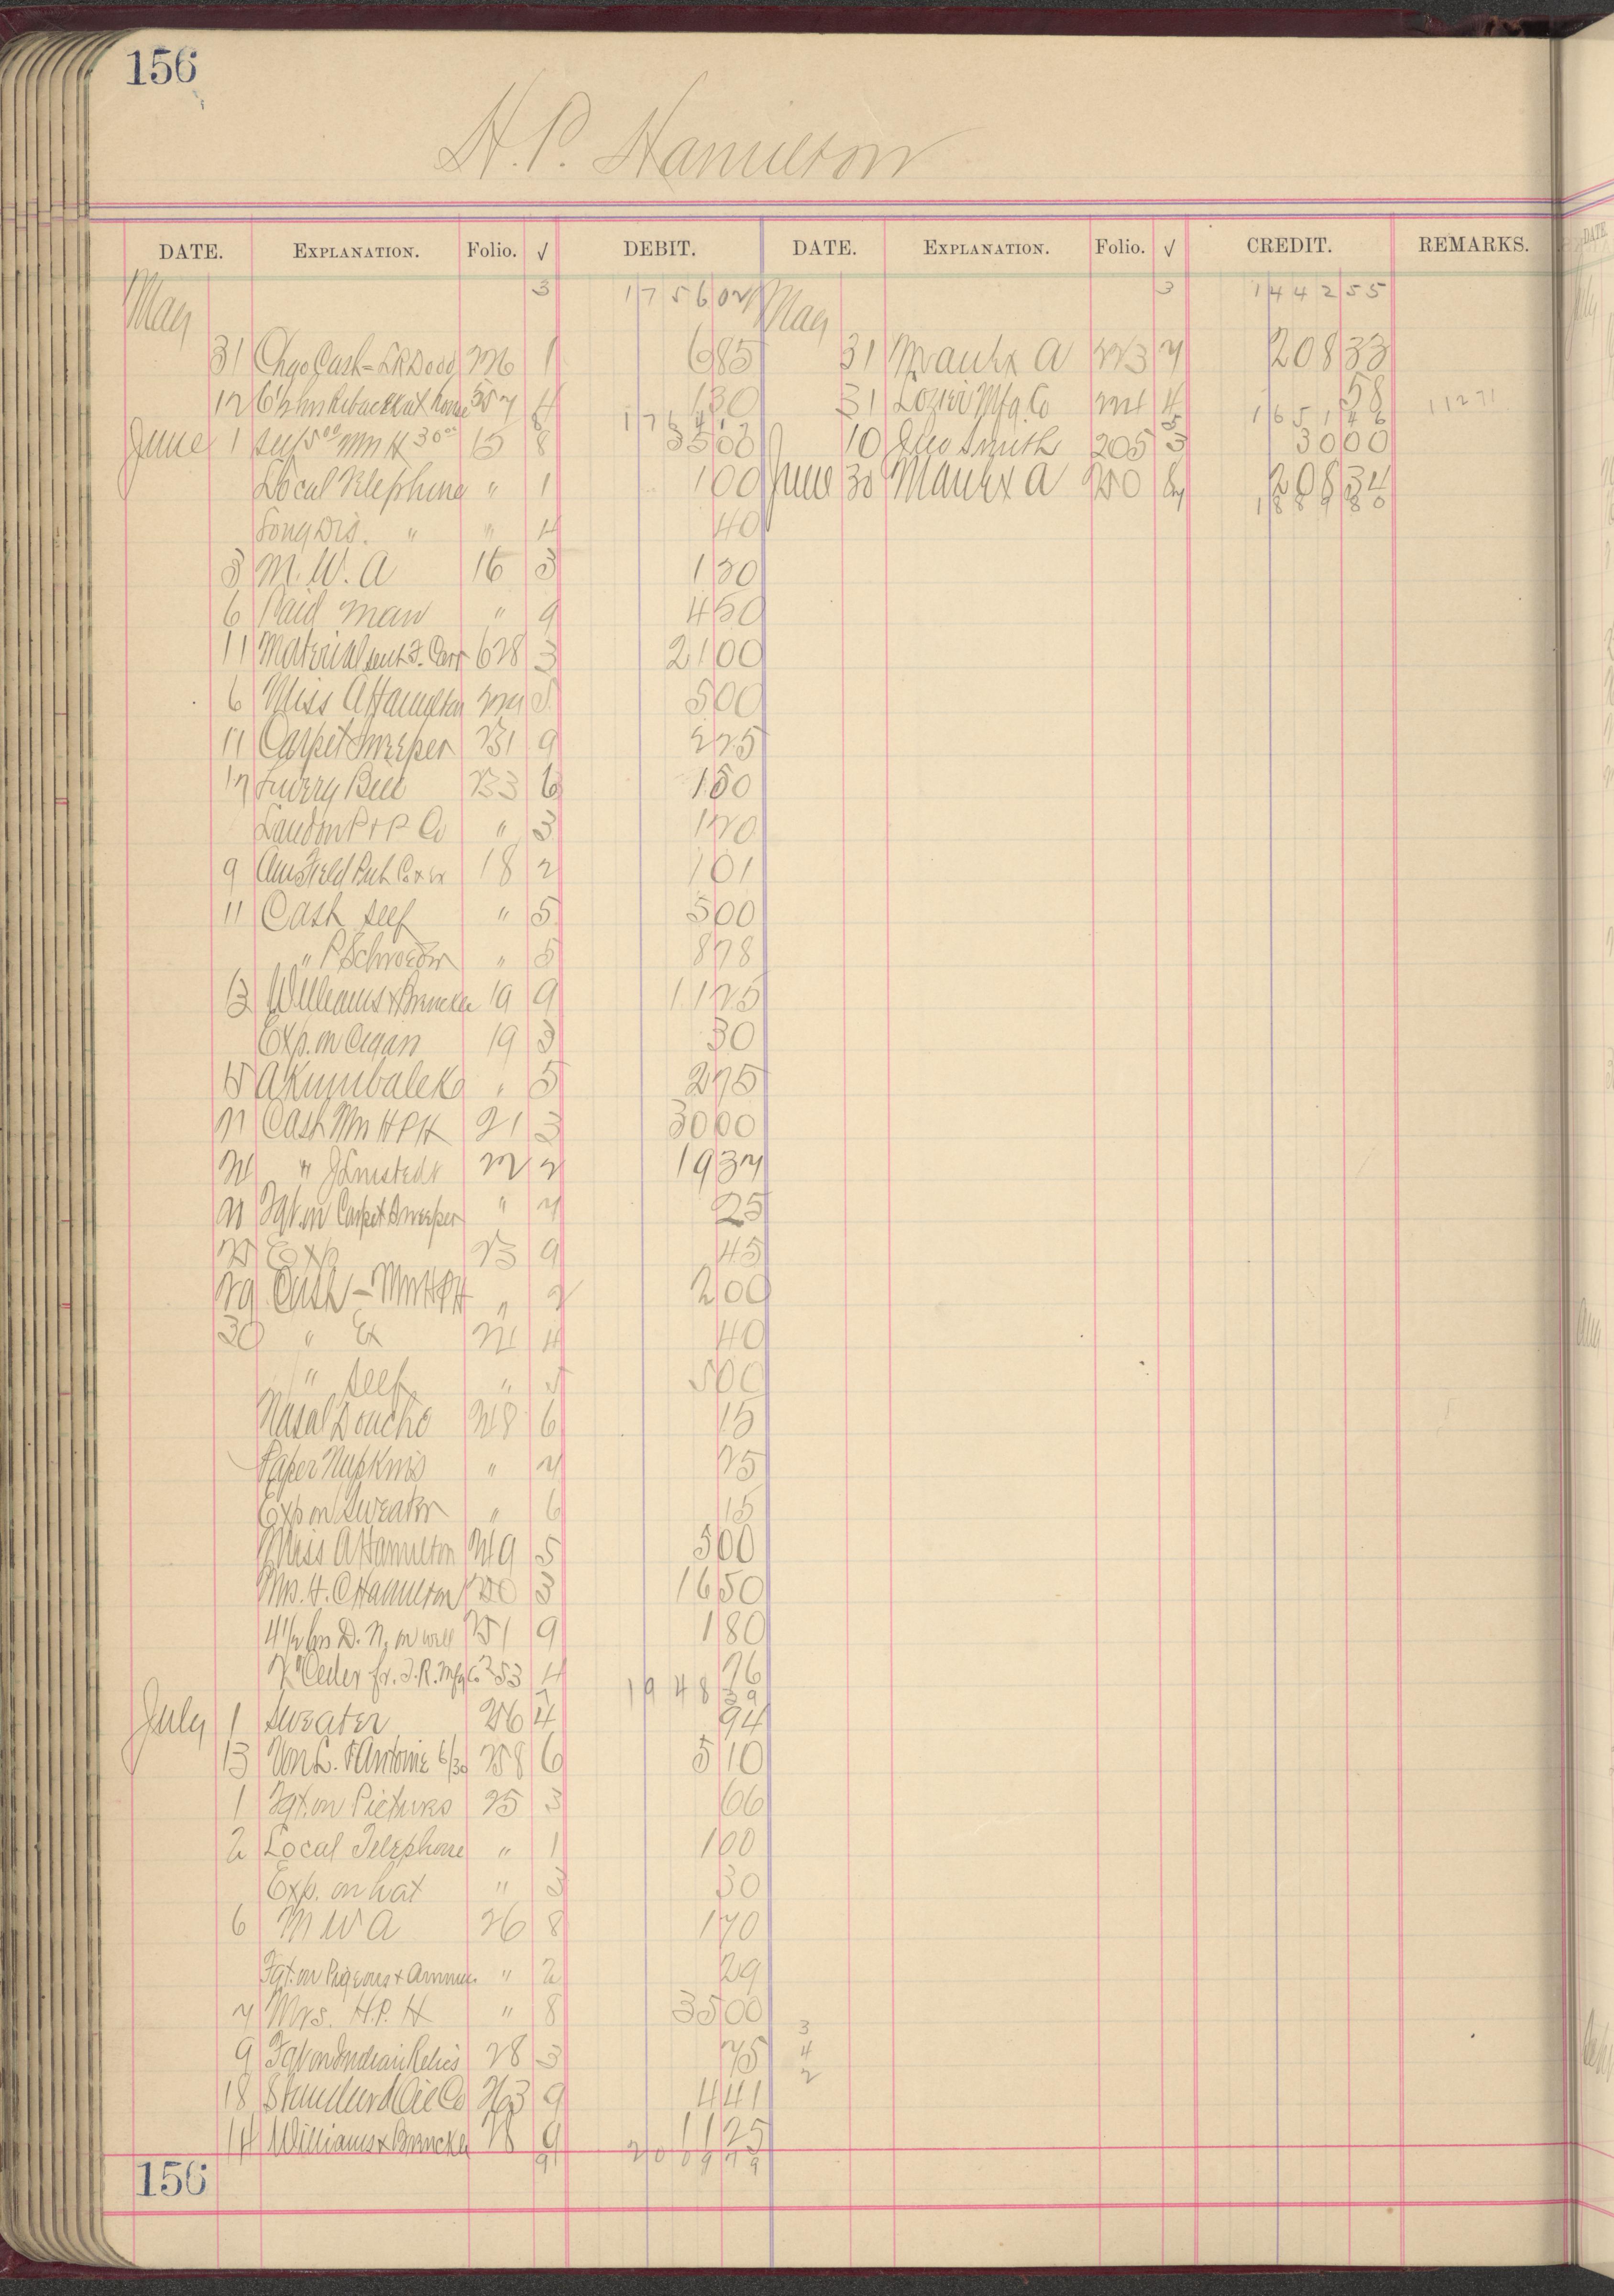 156
H. P. Hamilton
DATE. EXPLANATION. Folio. √ DEBIT. DATE. EXPLANATION. Folio. √ CREDIT. REMARKS.
May 3 1756 02 May 3 1442 55
31 Chgo Cash - 1 6 85 31 Manhx A 208 33
12 4 1 30 31 Lozier Mfg Co 4 58
1651 46 11271
June 1 15 8 35 00 10 Geo Smith 205 3 30 00
Local Telephone " 1 1 00 June 30 Manhx A 250 208 34
1889 80
Long Dis. " " 4 40
3 M. W. A 16 3 1 30
6 Paid Man " 9 4 50
11 Material 628 3 21 00
6 Miss A Hamilton 5 5 00
11 Carpet Sweeper 231 9 2 25
12 Livery Bill 233 6 1 50
P + P Co " 3 1 20
9 Am Field Pub Co 18 2 1 01
11 Cash self " 5 5 00
" P Schroeder " 5 8 78
13 Williams & Brancke 19 9 11 25
Exp. on Organ 19 3 30
25 " 5 2 75
Cash Mrs HPH 21 3 30 00
" J Linstedt 22 2 19 32
Fgt. on Carpet Sweeper " 25
25 Exp 23 9 45
29 Cash - Mrs HPH " 2 2 00
30 " Ex 24 4 40
" self " 5 5 00
Nasal Douche 248 6 15
Paper Napkins " 25
Exp on Sweater " 6 15
Miss A Hamilton 249 5 5 00
Mrs. H. C Hamilton 250 3 16 50
4 1/2 hrs D. N. on well 251 9 1 80
Cedar fr. J. R. Mfg Co 253 4 76
1948 39
July 1 Sweater 256 4 94
13 Antoine 6/30 258 6 5 10
1 Fgt. on Pictures 25 3 66
2 Local Telephone " 1 1 00
Exp. on hat " 3 30
6 M W A 26 8 1 70
Fgt. on Pigeons & Ammu. " 2 29
7 Mrs. H. P. H " 8 35 00
3
9 Fgt on Indian Relics 28 3 75 4
2
18 Standard Oil Co 263 9 4 41
14 Williams & Brancke 28 9 11 25
9 2009 79
156